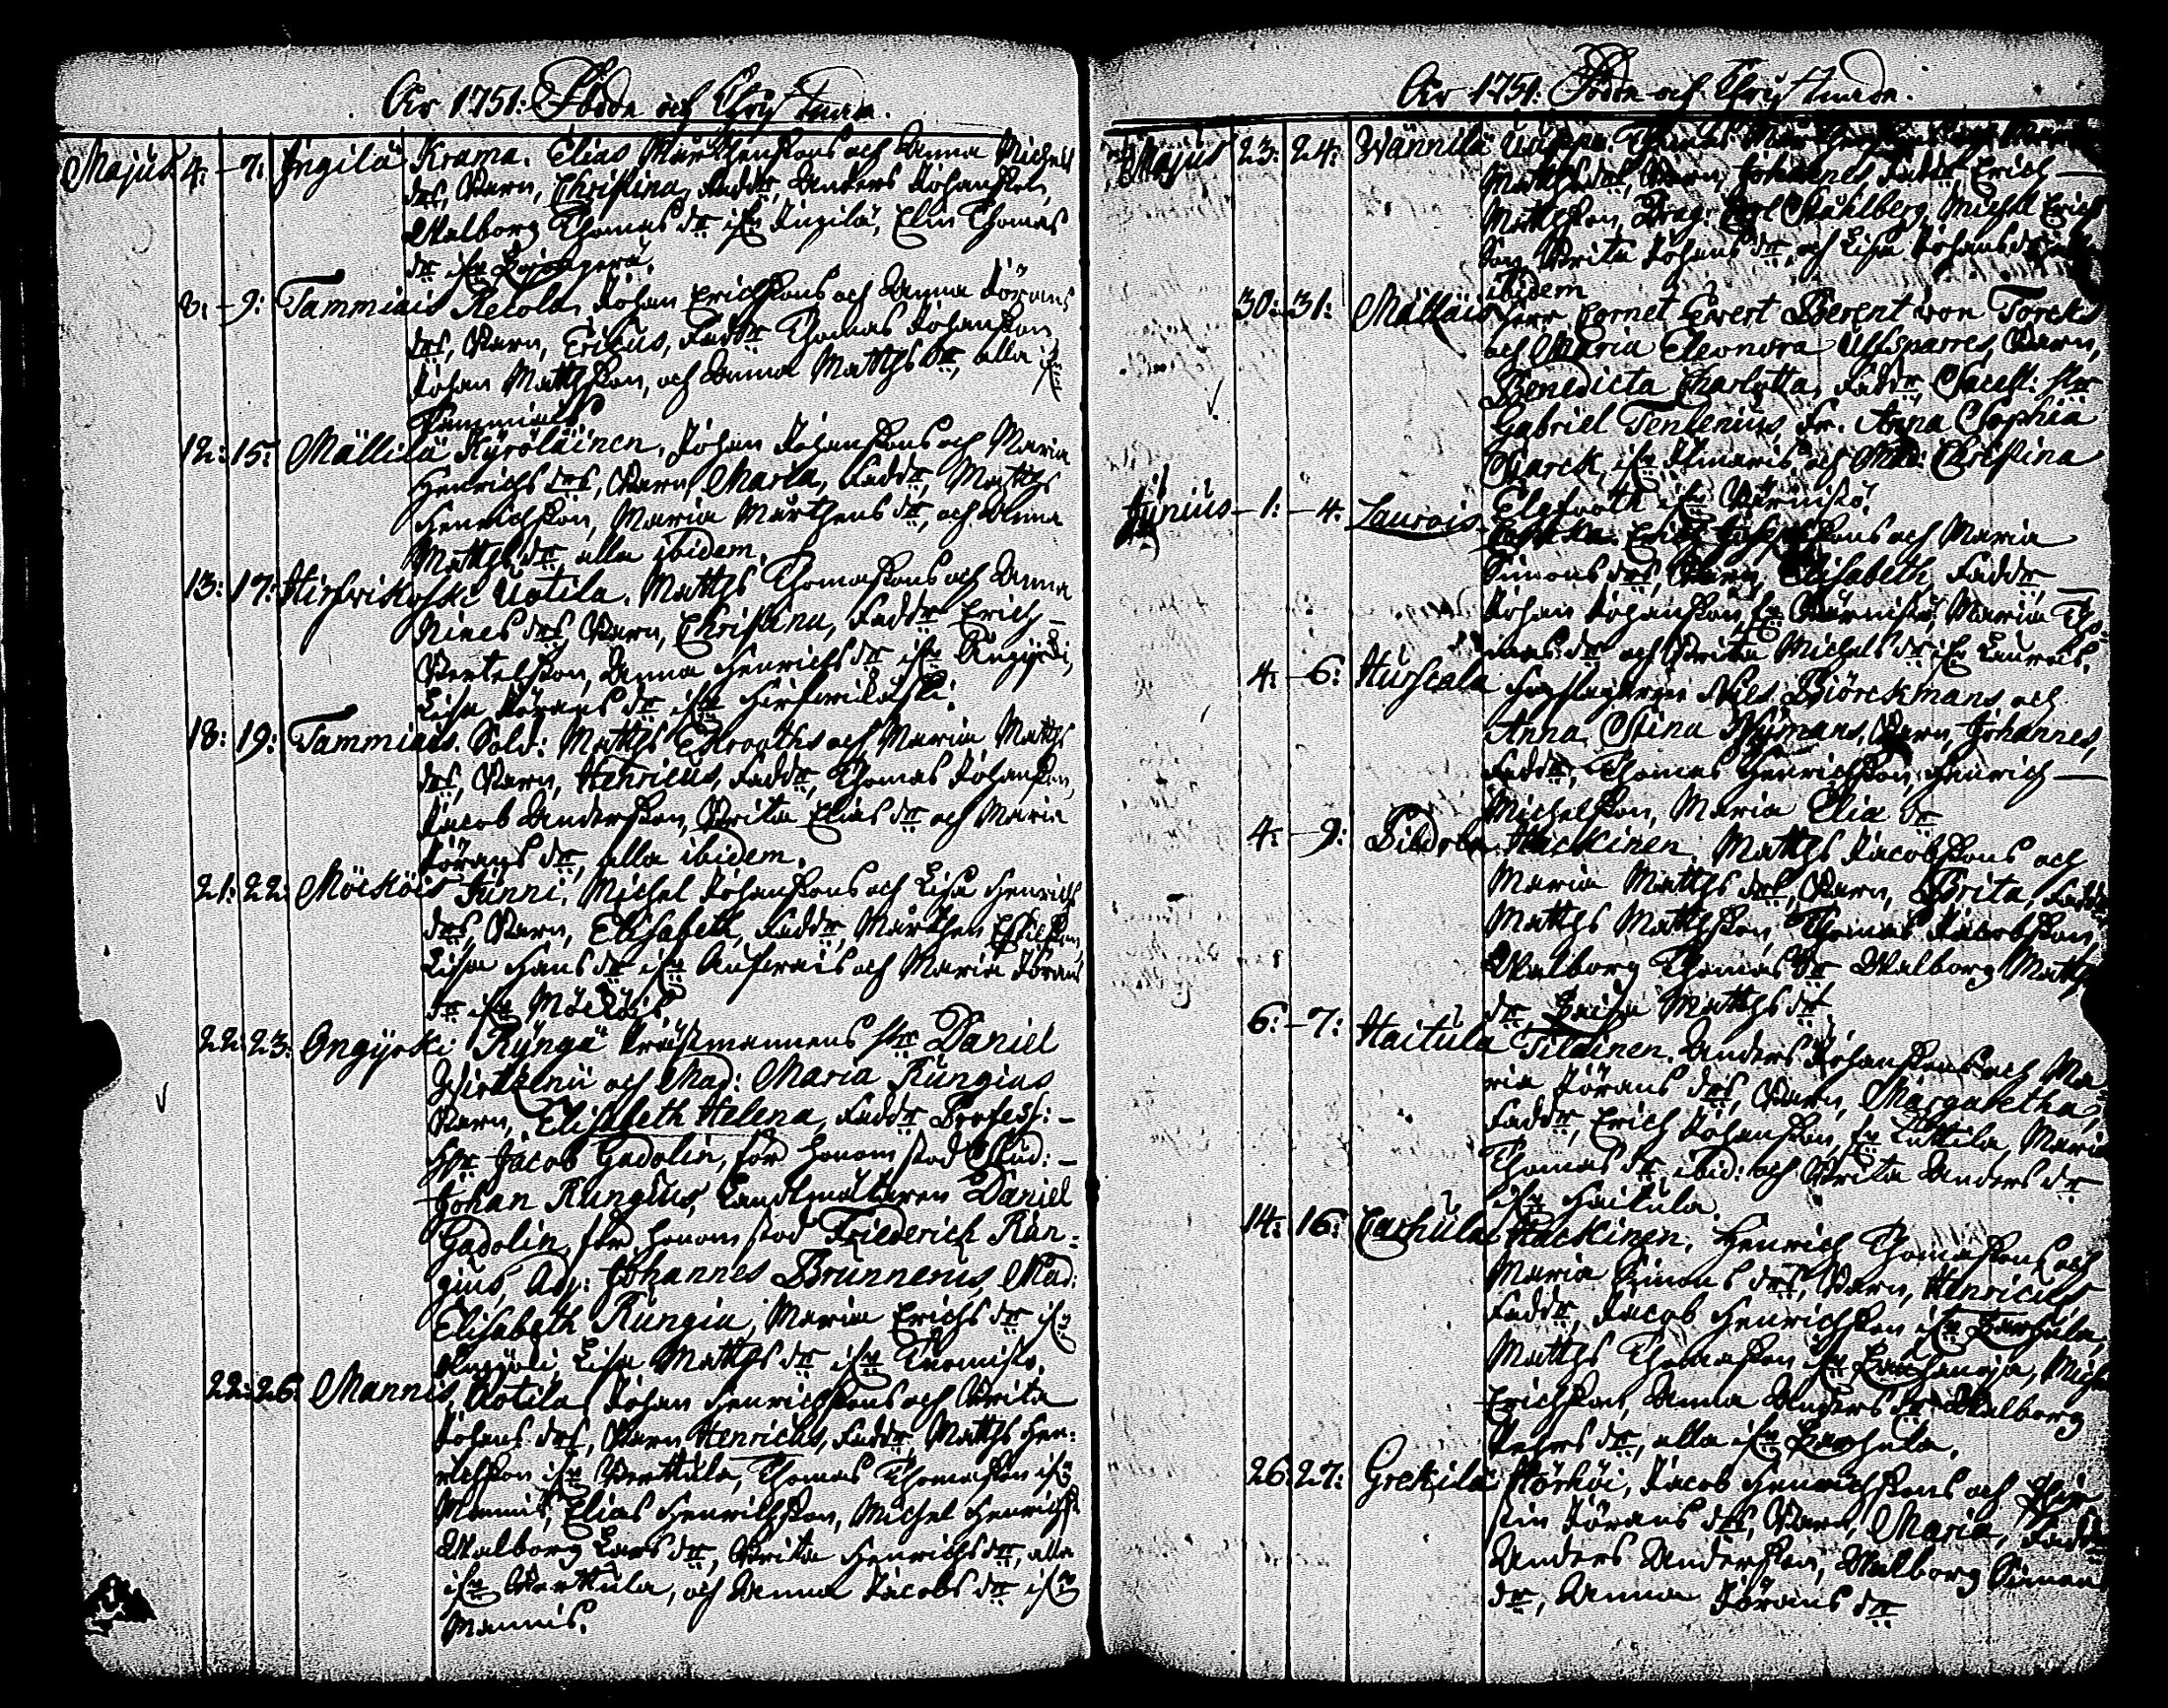 År 1751. Födde och Christnade.
Majus 4. 7. Ingilä Krama. Elias Mårthenssons och Anna Michels
drs, Barn, Christina, Faddr, Anders Johansson,
Walborg Thomas dr ifrn Ingilä, Elin Thomas
dr ifrn
8. 9. Tammiais Recola, Johan Erichssons och Anna Jörans
drs, Barn, Ericus, Faddr Thomas Johansson
Johan Matthsson, och Anna Matths dr, alla ifrn
Tammiais
12. 15. Mällilä Kyröläinen. Johan Johanssons och Maria
Henrichs drs, Barn Maria, Faddr, Matths
Henrichsson, Maria Mårthens dr, och Anna
Matths dr alla ibidem.
13. 17. Hirfwikoski Uotila. Matths Thomassons och Anna
Niels drs, Barn, Christina, Faddr Erich
Bertelsson, Anna Henrichs dr ifrn
Lisa Jörans dr ifrn Hirfwikoski.
18. 19. Tammiais. Sold: Matths och Maria Matths
drs, Barn, Henricus, Faddr, Thomas Johansson,
Jacob Andersson, Brita Elias dr och Maria
Jörans dr, alla ibidem.
21. 22. Möckois Junni. Michel Johanssons och Lisa Henrichs
drs, Barn, Elisabeth, Faddr, Mårthen Eskilsson,
Lisa Hans dr ifrn och Maria Jörans
dr ifrn Möckois
22. 23. Ongijoki Rüngä Präfmannens Hr Daniel
Wirtzenii och Mad: Maria Rungius
Barn, Elisabeth Helena, Faddr Profess:
Hr Jacob Gadolin, för honom stod Stud:
Johan Rungius, Landtmätaren Daniel
Gadolin, för honom stod Friederich Run-
gius, Adj: Johannes Brunnerus, Mad:
Elisabeth Rungia, Maria Erichs dr ifrn
Ongijoki, Lisa Matths dr ifrn
22. 26. Mannis, Rotila, Johan Henrichssons och Brita
Johans drs, Barn Henricus, Faddr, Matths Hen-
richsson ifrn Perttula, Thomas Thomasson ifrn
Mannis, Elias Henrichsson, Michel Henrichs
Walborg Lars dr, Brita Henrichs dr, alla
ifrn Perttula, och Anna Jacobs dr ifrn
Mannis.
År 1751. Födde och Christnade.
Majus 23. 24. Wännilä
Matths drs, Barn, Johannes Faddr Erich
Matthsson, Drag: Ståhlberg, Michel Erich
Son, Brita Johans dr, och Lisa Johans dr
ibidem
30. 31. Mälläis Herr Cornet Ewert Berent von Torcks
och Maria Eleonora Ulfsparres, Barn,
Benedicta Charlotta, Faddr, Sacell: Hr
Gabriel Tenlenius, Fr. Anna Sophia
Starck, ifrn och Mad: Christina
Elgfooth ifrn
Junius 1. 4. Laurois Erich och Maria
Simons drs, Barn, Elisabeth, Faddr,
Johan Johansson, Maria Tho-
mas dr och Brita Michels dr ifrn Laurois.
4. 6. Hurscala Nils Björckmans och
Anna Stina Nymans, Barn, Johannes,
Faddr, Thomas Henrichsson, Henrich
Michelsson, Maria Elia dr
4. 9. Hackinen. Matths Jacobssons och
Maria Matths drs, Barn, Brita, Faddr
Matths Matthsson, Thomas Jacobsson,
Walborg Thomas dr Walborg Matths
dr Matths dr.
6. 7. Haitula Tiläinen. Anders Johanssons och Ma-
ria Jörans drs, Barn, Margaretha,
Faddr, Erich Johansson, Maria
Thomas dr ibid: och Brita Anders dr
ifrn Haitula.
14. 16. Carhula Hackinen. Henrich Thomassons och
Maria Simons drs, Barn, Henricus
Faddr, Jacob Henrichsson ifrn Carhula,
Matths Thomasson ifrn Michel
Erichsson, Anna Anders dr Walborg
Pehrs dr, alla ifrn Carhula.
26. 27. Greckilä Hörköi, Jacob Henrichssons och
Jörans drs, Barn, Maria, Faddr
Anders Andersson, Walborg Simons
dr, Anna Jörans dr